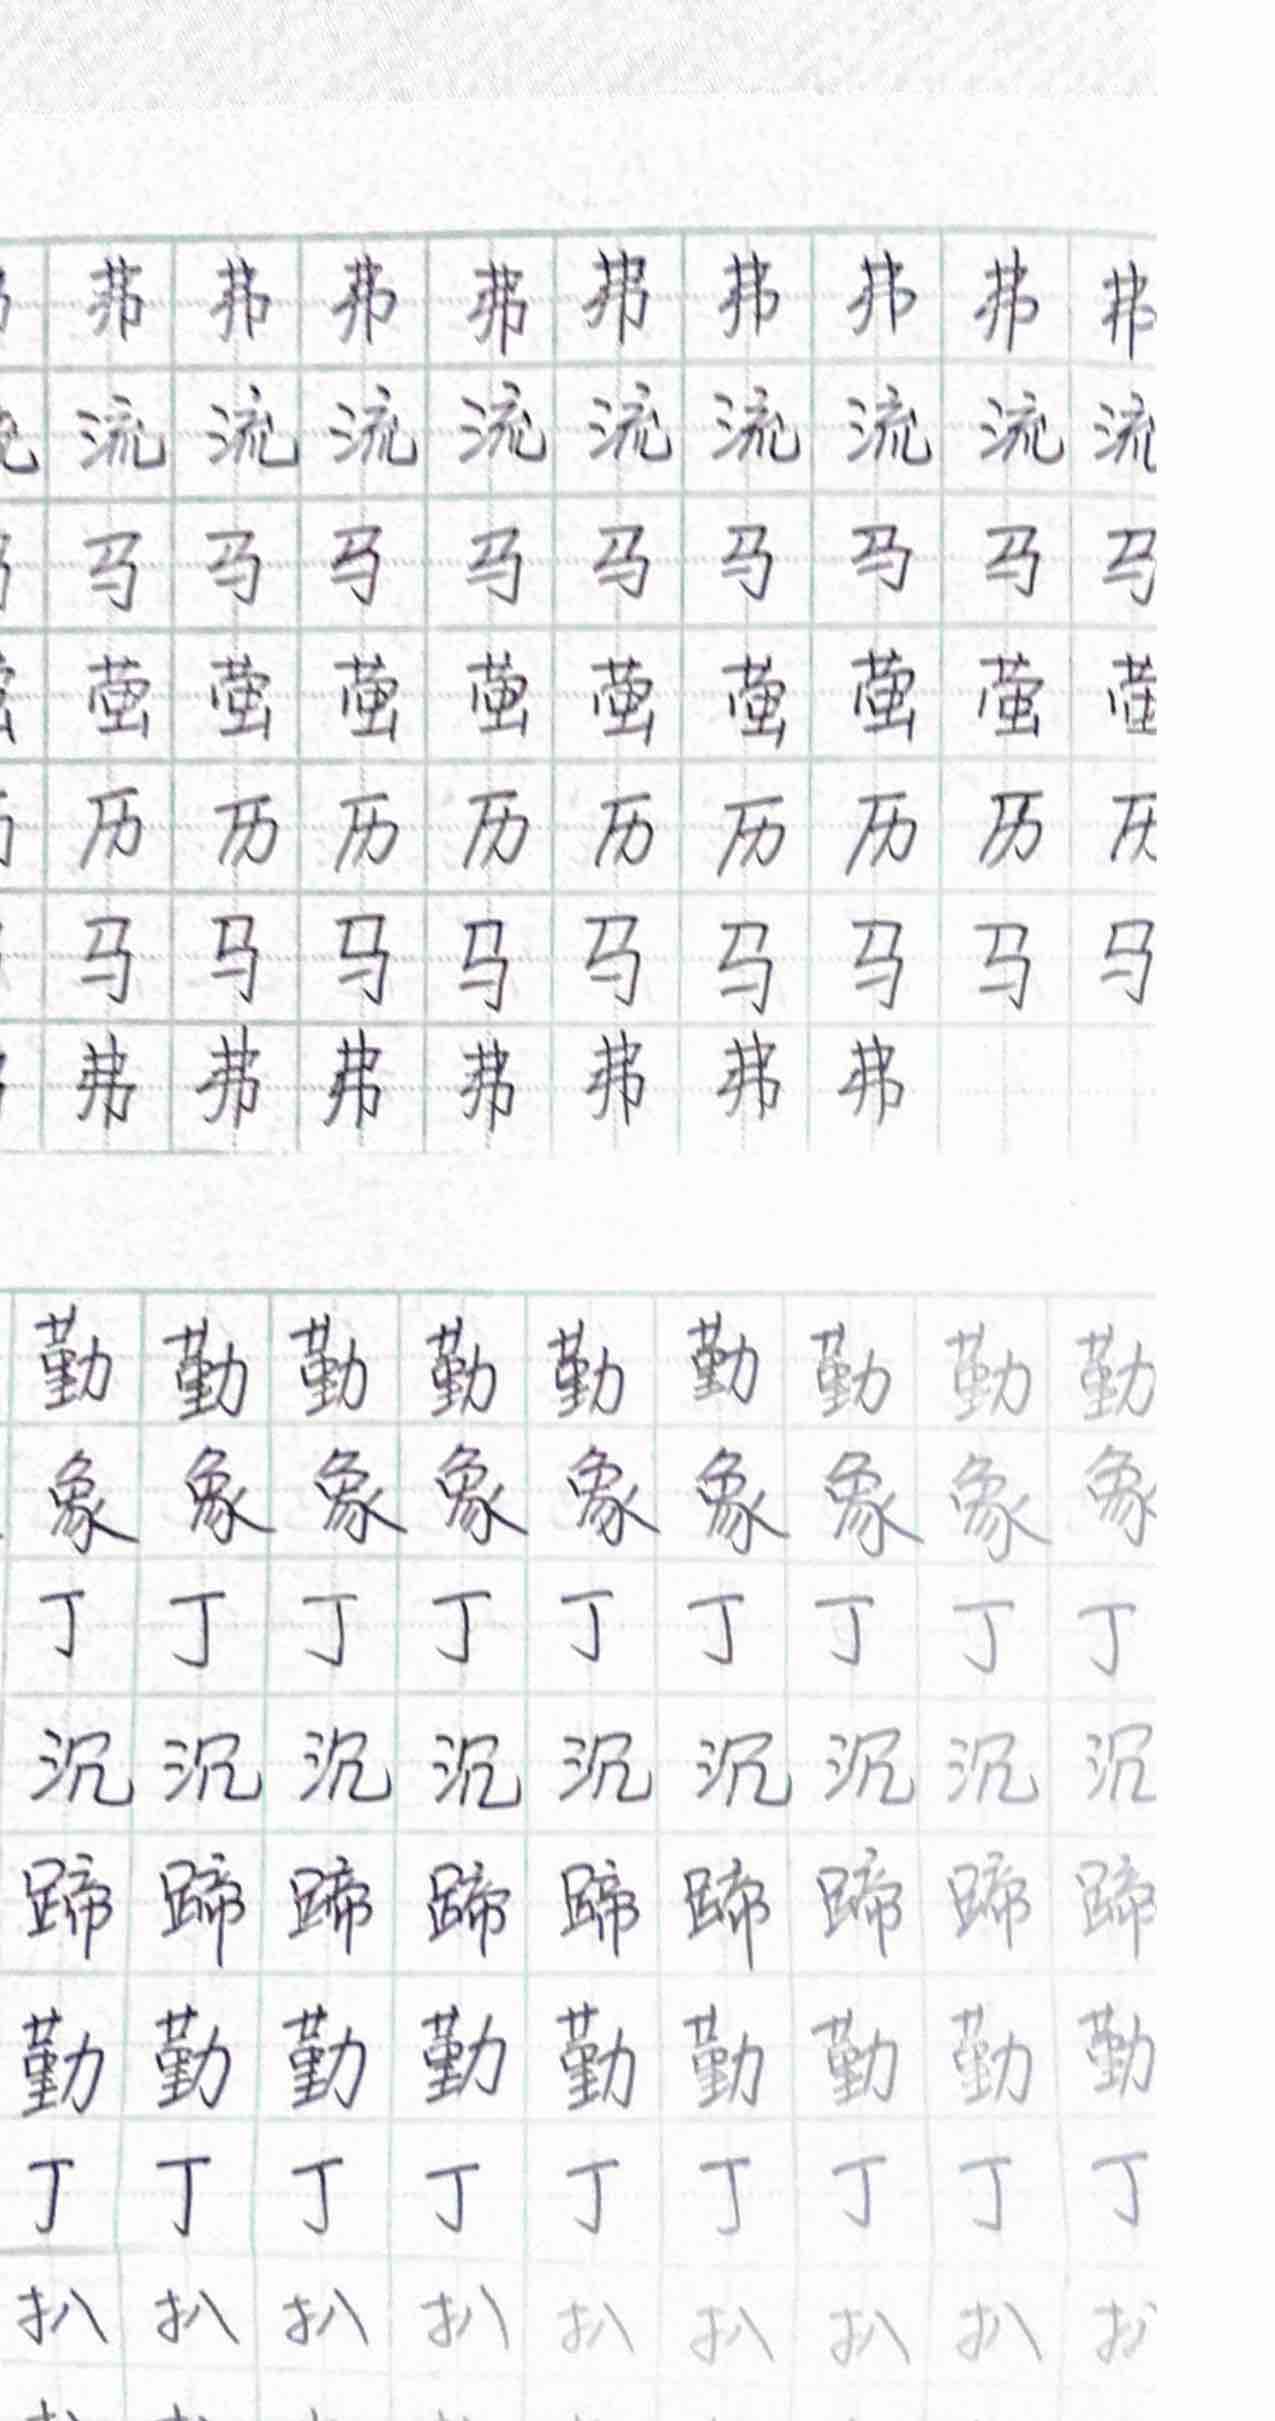 弗弗弗弗弗弗弗弗弗
流流流流流流流流流
马马马马马马马马马
萤萤萤萤萤萤萤萤萤
历历历历历历历历历
马马马马马马马马马
弗弗弗弗弗弗弗
勤勤勤勤勤勤勤勤勤
象象象象象象象象象
丁丁丁丁丁丁丁丁丁
沉沉沉沉沉沉沉沉沉
蹄蹄蹄蹄蹄蹄蹄蹄蹄
勤勤勤勤勤勤勤勤勤
丁丁丁丁丁丁丁丁丁
扒扒扒扒扒扒扒扒扒